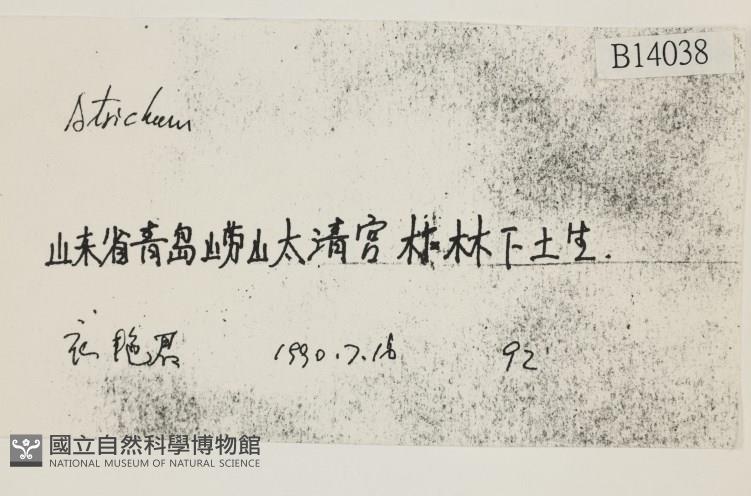 B14038
Atrichum
山东省青岛崂山太清宫林下土生.
衣艳君 1990.7.16 92
國立自然科學博物館
NATIONAL MUSEUM OF NATURAL SCIENCE